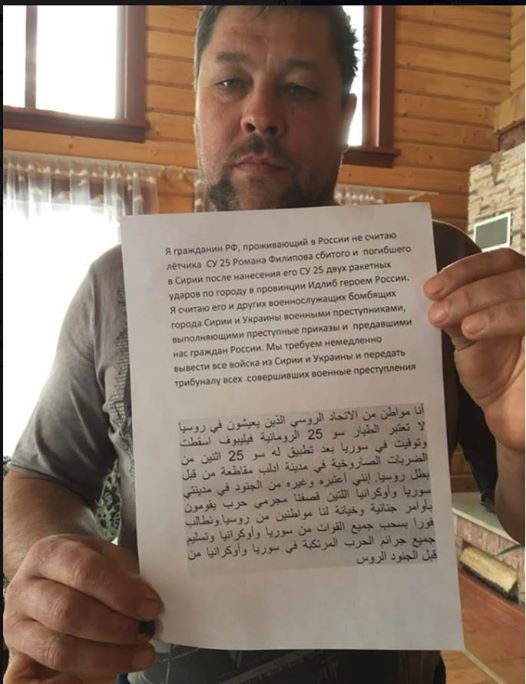 Я гражданин РФ, проживающий в России не считаю
лётчика СУ 25 Романа Филипова сбитого и погибшего
в Сирии после нанесения его СУ 25 двух ракетных
ударов по городу в провинции Идлиб героем России.
Я считаю его и других военнослужащих бомбящих
города Сирии и Украины военными преступниками,
выполняющими преступные приказы и предавшими
нас граждан России. Мы требуем немедленно
вывести все войска из Сирии и Украины и передать
трибуналу всех совершивших военные преступления
أنا مواطن من الاتحاد الروسي الذين يعيشون في روسيا
لا تعتبر الطيار سو 25 الرومانية فيليبوف اسقطت
وتوفيت في سوريا بعد تطبيق له سو 25 اثنين من
الضربات الصاروخية في مدينة ادلب مقاطعة من قبل
بطل روسيا. إنني أعتبره وغيره من الجنود في مدينتي
سوريا وأوكرانيا اللتين قصفتا مجرمي حرب يقومون
بأوامر جنائية وخيانة لنا مواطنين من روسيا.ونطالب
فورا بسحب جميع القوات من سوريا وأوكرانيا وتسليم
جميع جرائم الحرب المرتكبة في سوريا وأوكرانيا من
قبل الجنود الروس